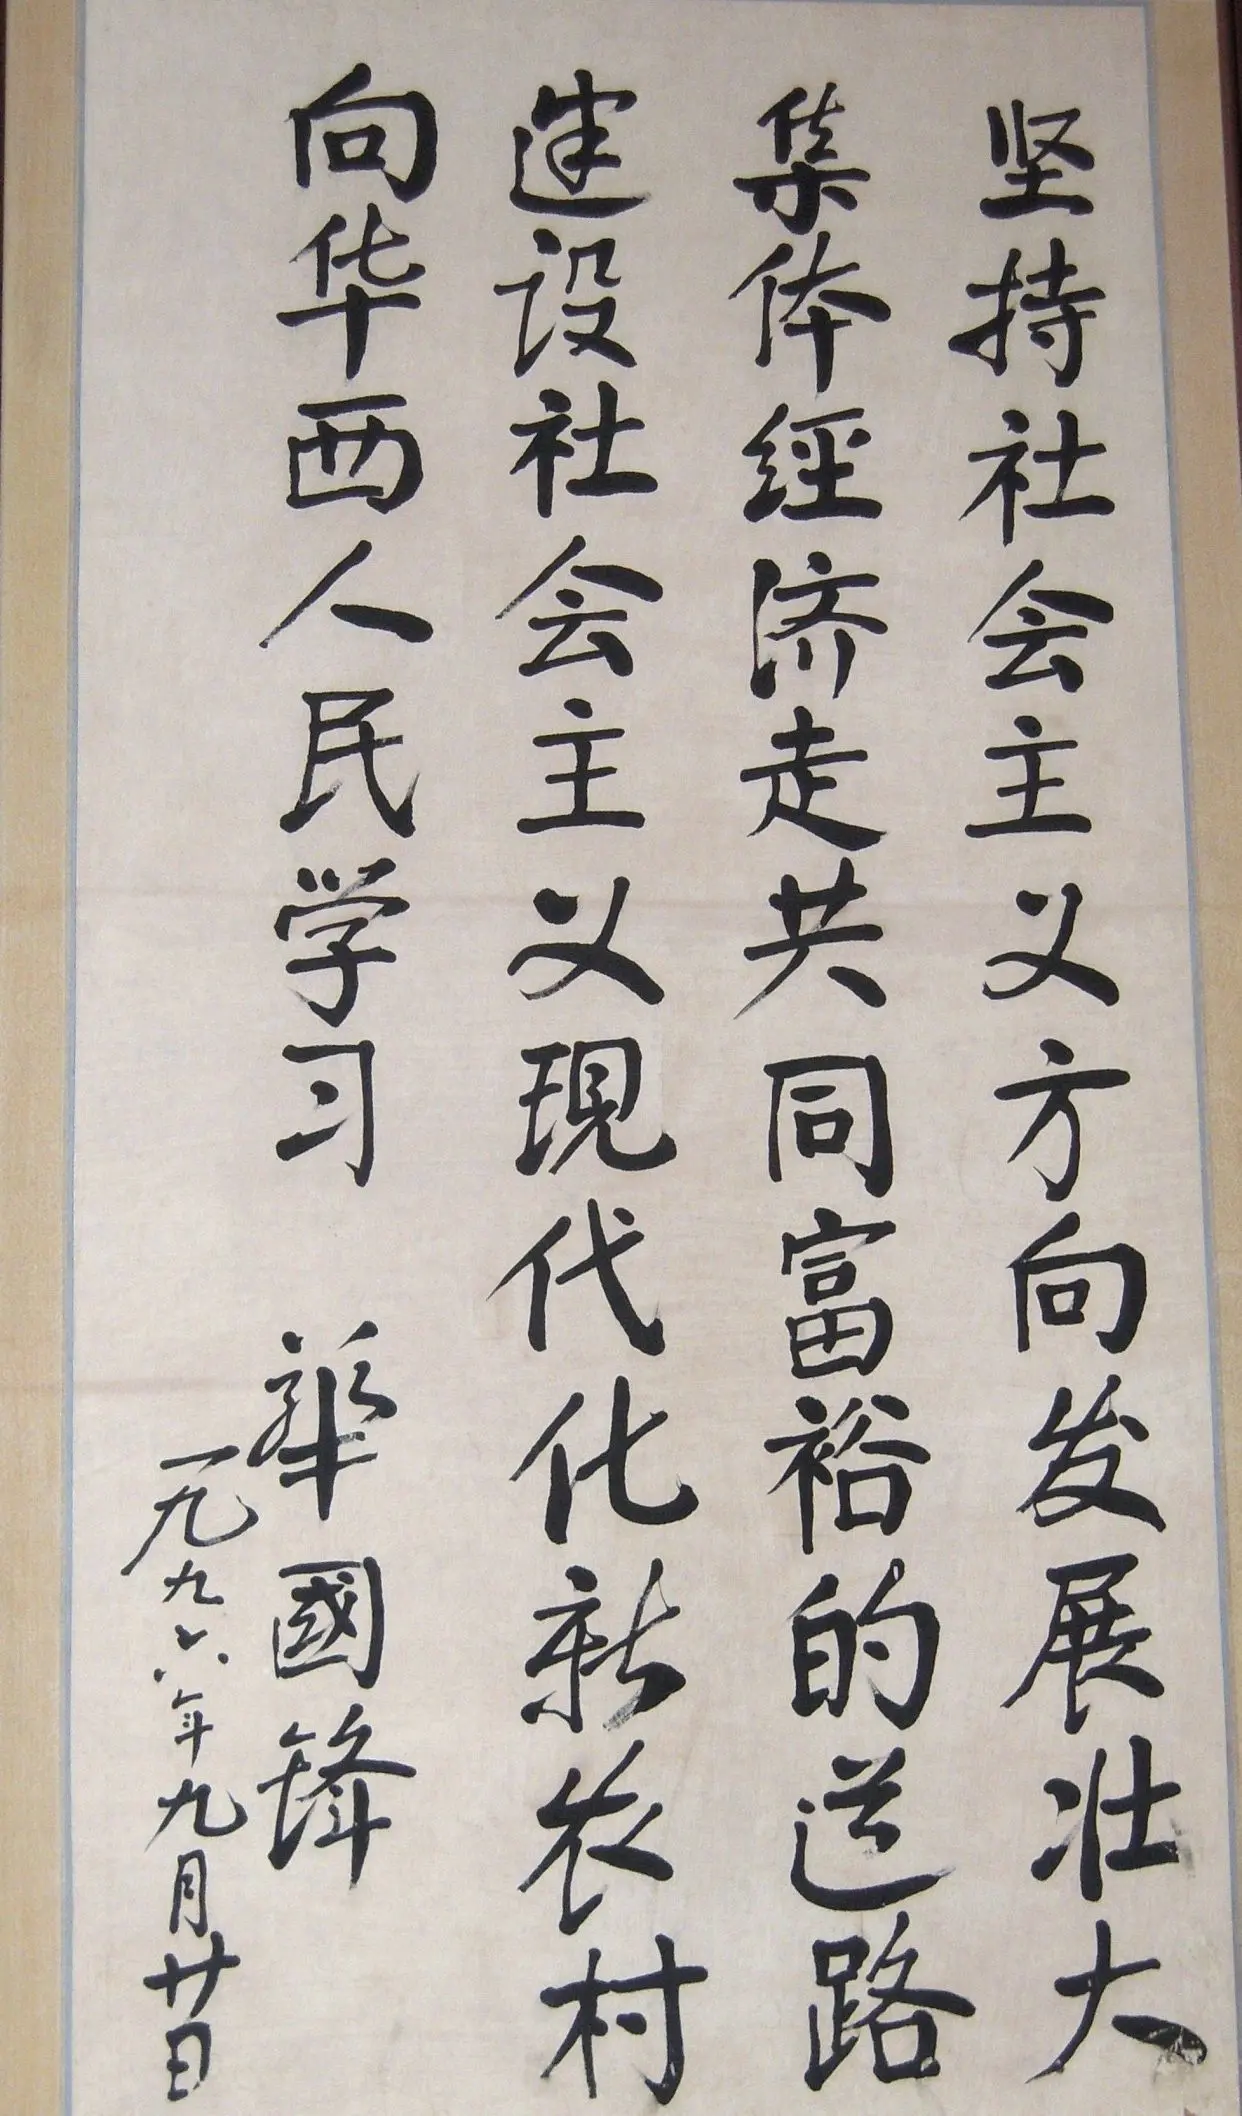 坚持社会主义方向发展壮大
集体经济走共同富裕的道路
建设社会主义现代化新农村
向华西人民学习
華國锋
一九九六年九月廿日